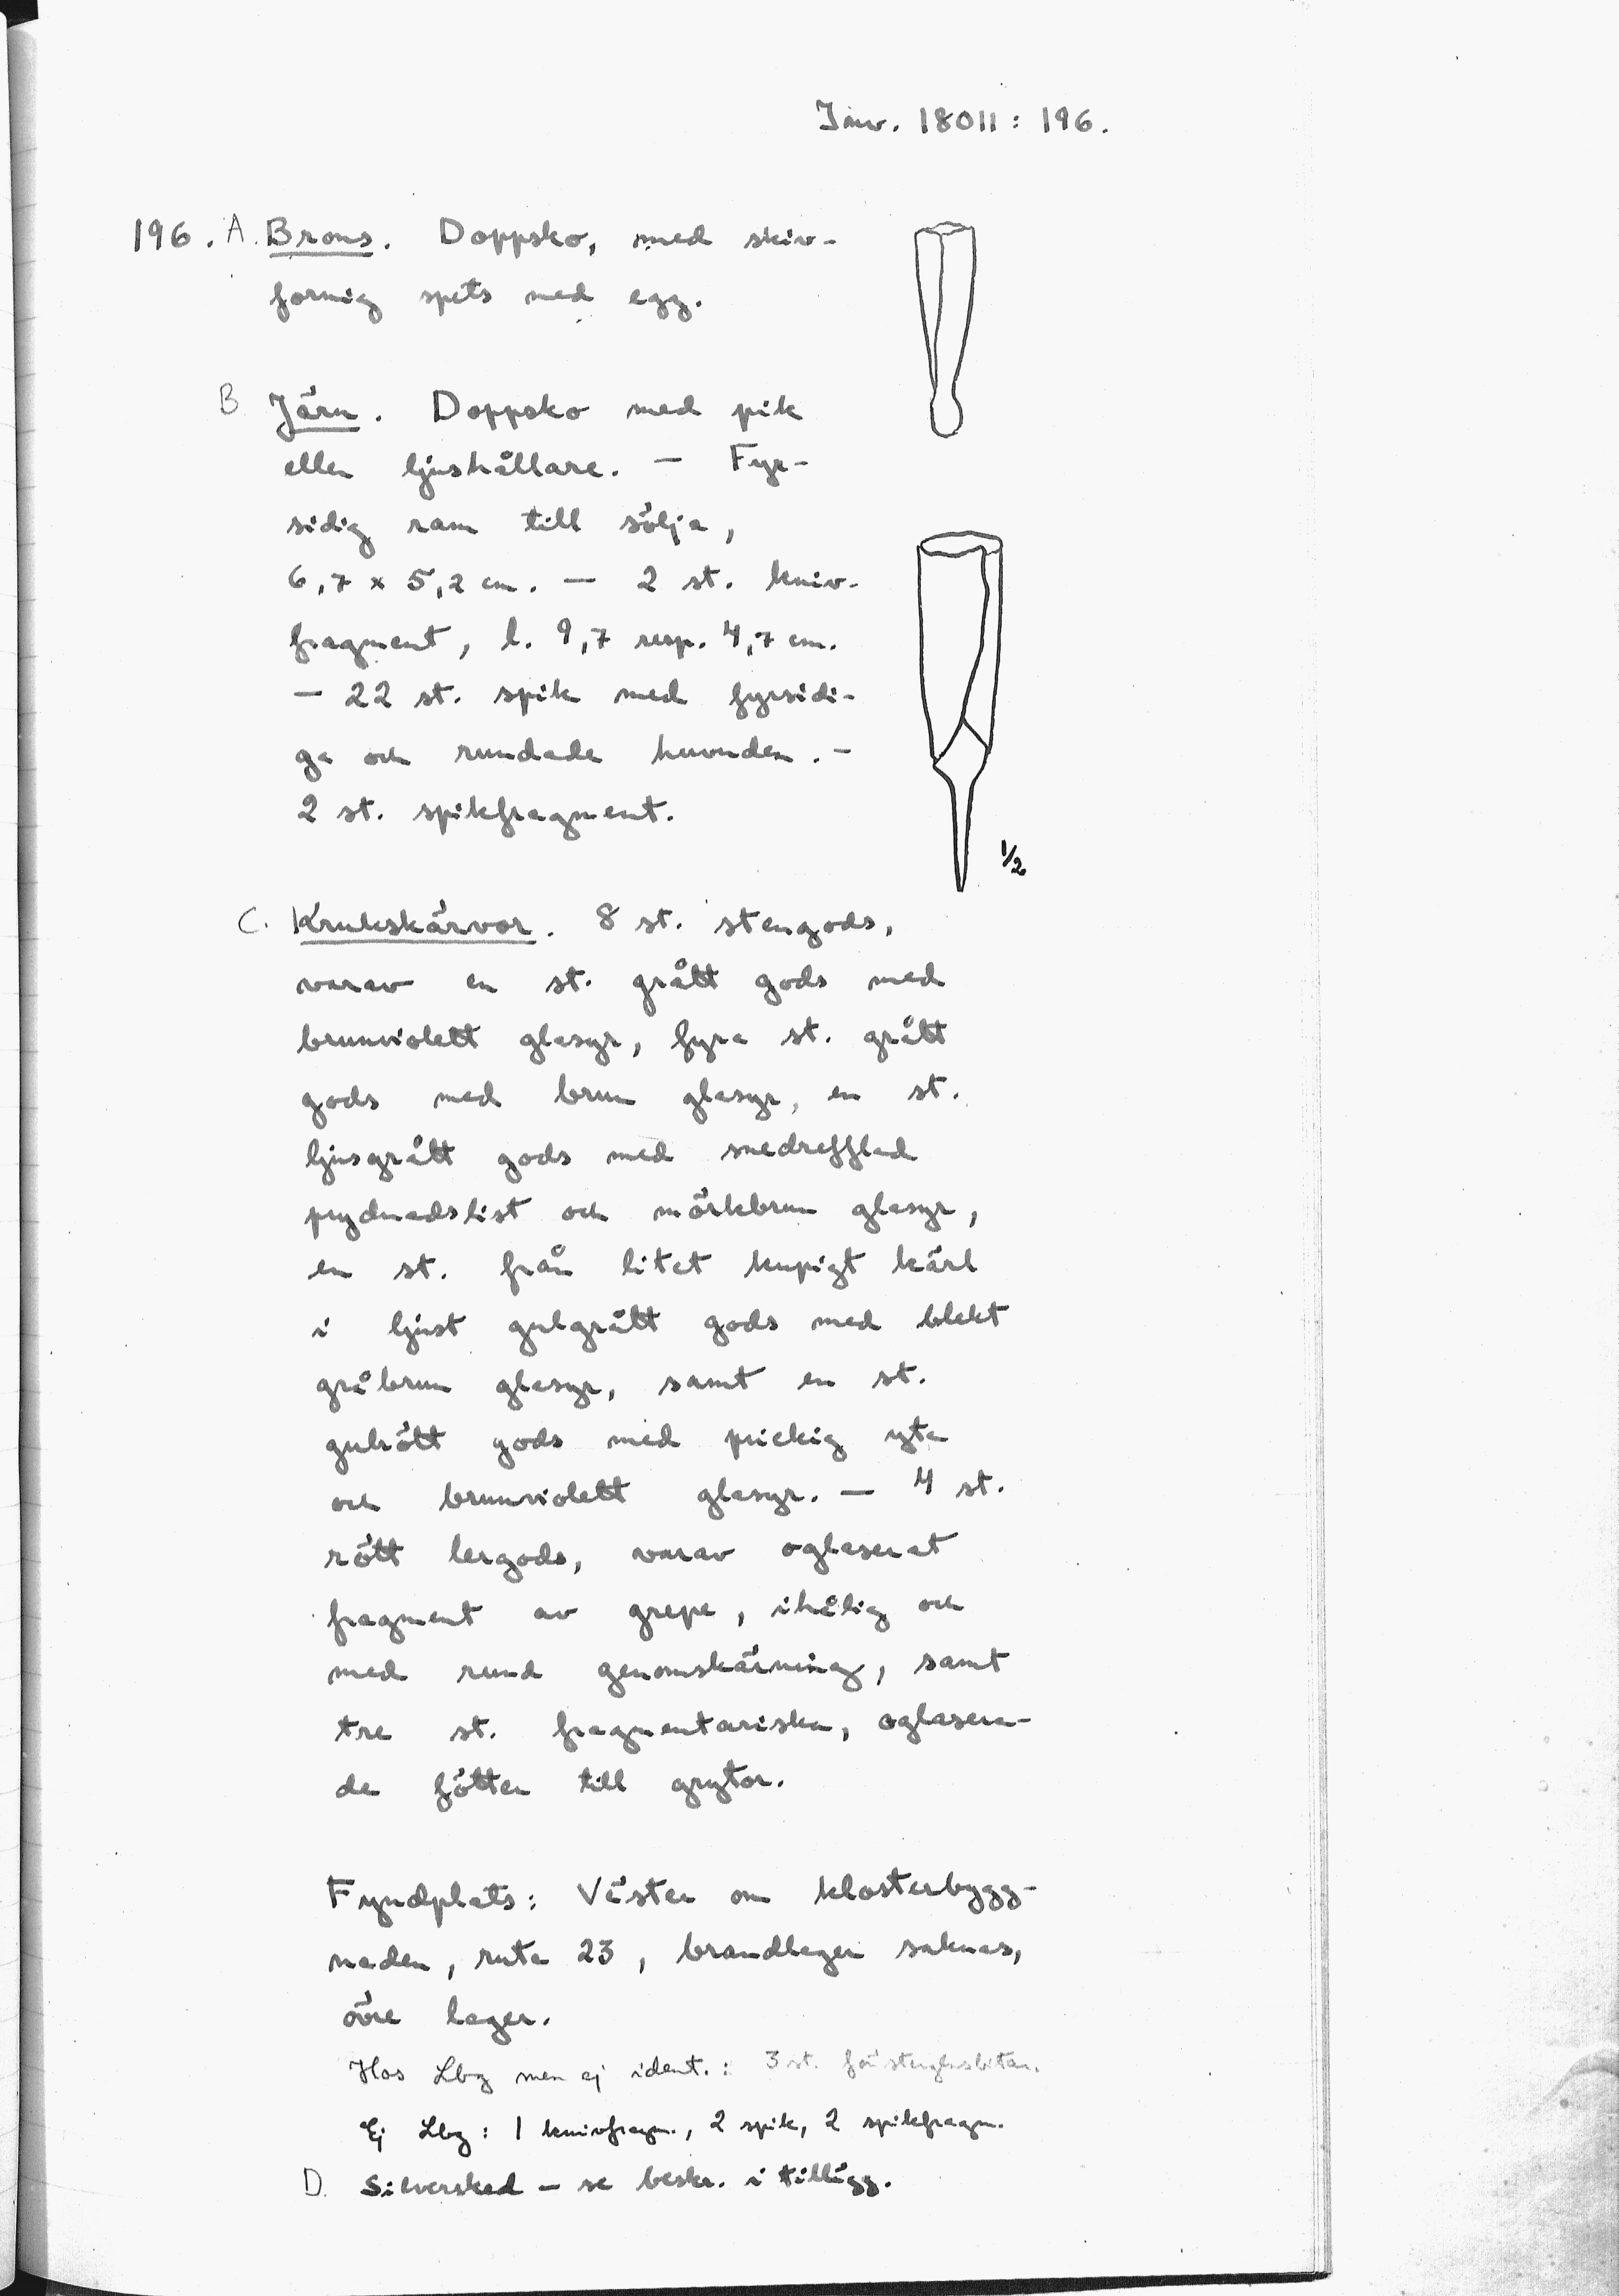 Inv. 18011: 196.
196. A. Brons. Doppsko, med skiv-
formig spets med egg.
B Järn. Doppsko med pik
eller ljushållare. — Fyr-
sidig ram till sölja,
6,7 x 5,2 cm. — 2 st. kniv-
fragment, l. 9,7 resp. 4,7 cm.
— 22 st. spik med fyrsidi-
ga och rundade huvuden. —
2 st. spikfragment.
1/2
C. Krukskärvor. 8 st. stengods,
varav en st. grått gods med
brunviolett glasyr, fyra st. grått
gods med brun glasyr, en st.
ljusgrått gods med snedrefflad
prydnadslist och mörkbrun glasyr,
en st. från litet kupigt kärl
i ljust gulgrått gods med blekt
gråbrun glasyr, samt en st.
gulrött gods med prickig yta
och brunviolett glasyr. — 4 st.
rött lergods, varav oglaserat
fragment av grepe, ihålig och
med rund genomskärning, samt
tre st. fragmentariska, oglasera-
de fötter till grytor.
Fyndplats: Väster om klosterbygg-
naden, ruta 23, brandlager saknas,
övre lager.
Hos Lbg men ej ident.: 3 st. fönsterglasbitar.
Ej Lbg: 1 knivfragm., 2 spik, 2 spikfragm.
D. Silversked — se beskr. i tillägg.